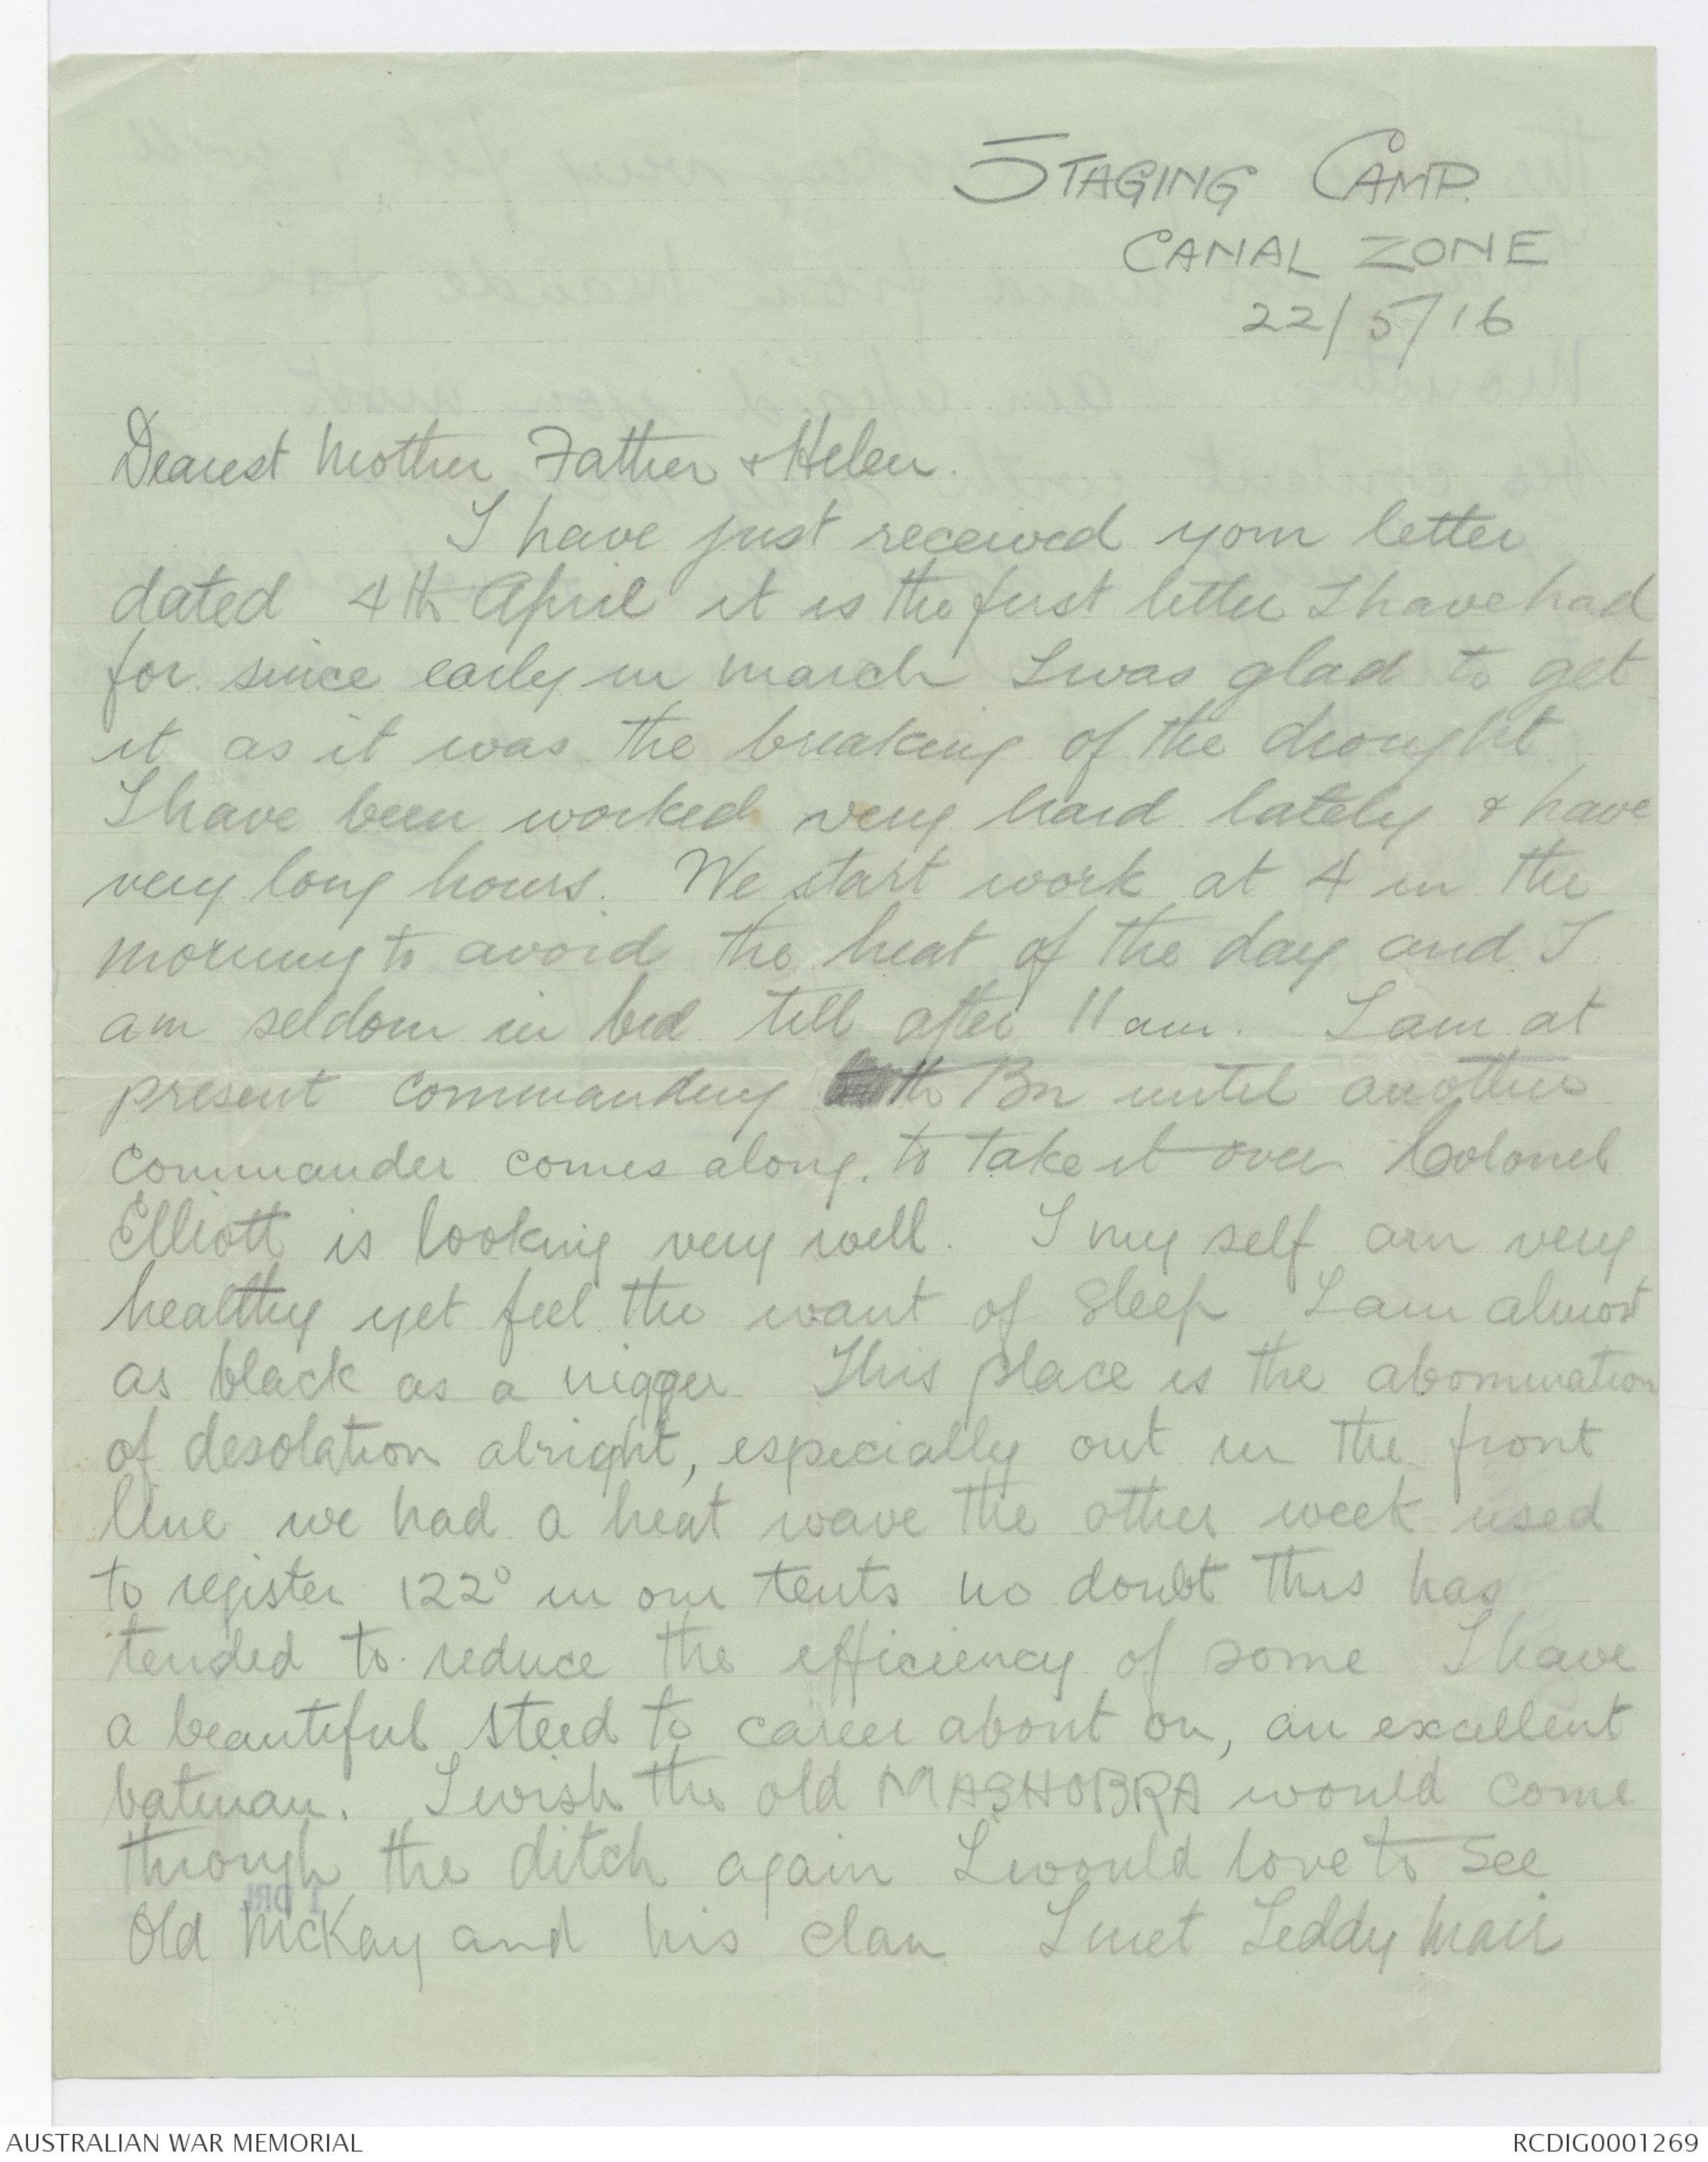 STAGING CAMP.
CANAL ZONE
22/5/16
Dearest Mother Father & Helen.
I have just received your letter
dated 4th April it is the first letter I have had
for since early in March I was glad to get
it as it was the breaking of the drought.
I have been worked very hard lately & have
very long hours. We start work at 4 in the
morning to avoid the heat of the day and I
am seldom in bed till after 11 am. I am at
present commanding th Bn until another
Commander comes along. to take it over Colonel
Elliott is looking very well. I my self am very
healthy yet feel the want of sleep I am almost
as black as a nigger This place is the abomination
of desolation alright, especially out in the front
line we had a heat wave the other week used
to register 122° in our tents no doubt this has
tended to reduce the efficiency of some I have
a beautiful steed to career about on, an excellent
batman. I wish the old MASHOBRA would come
through the ditch again I would love to see
Old McKay and his clan I met Teddy Mair
AUSTRALIAN WAR MEMORIAL
RCDIG0001269